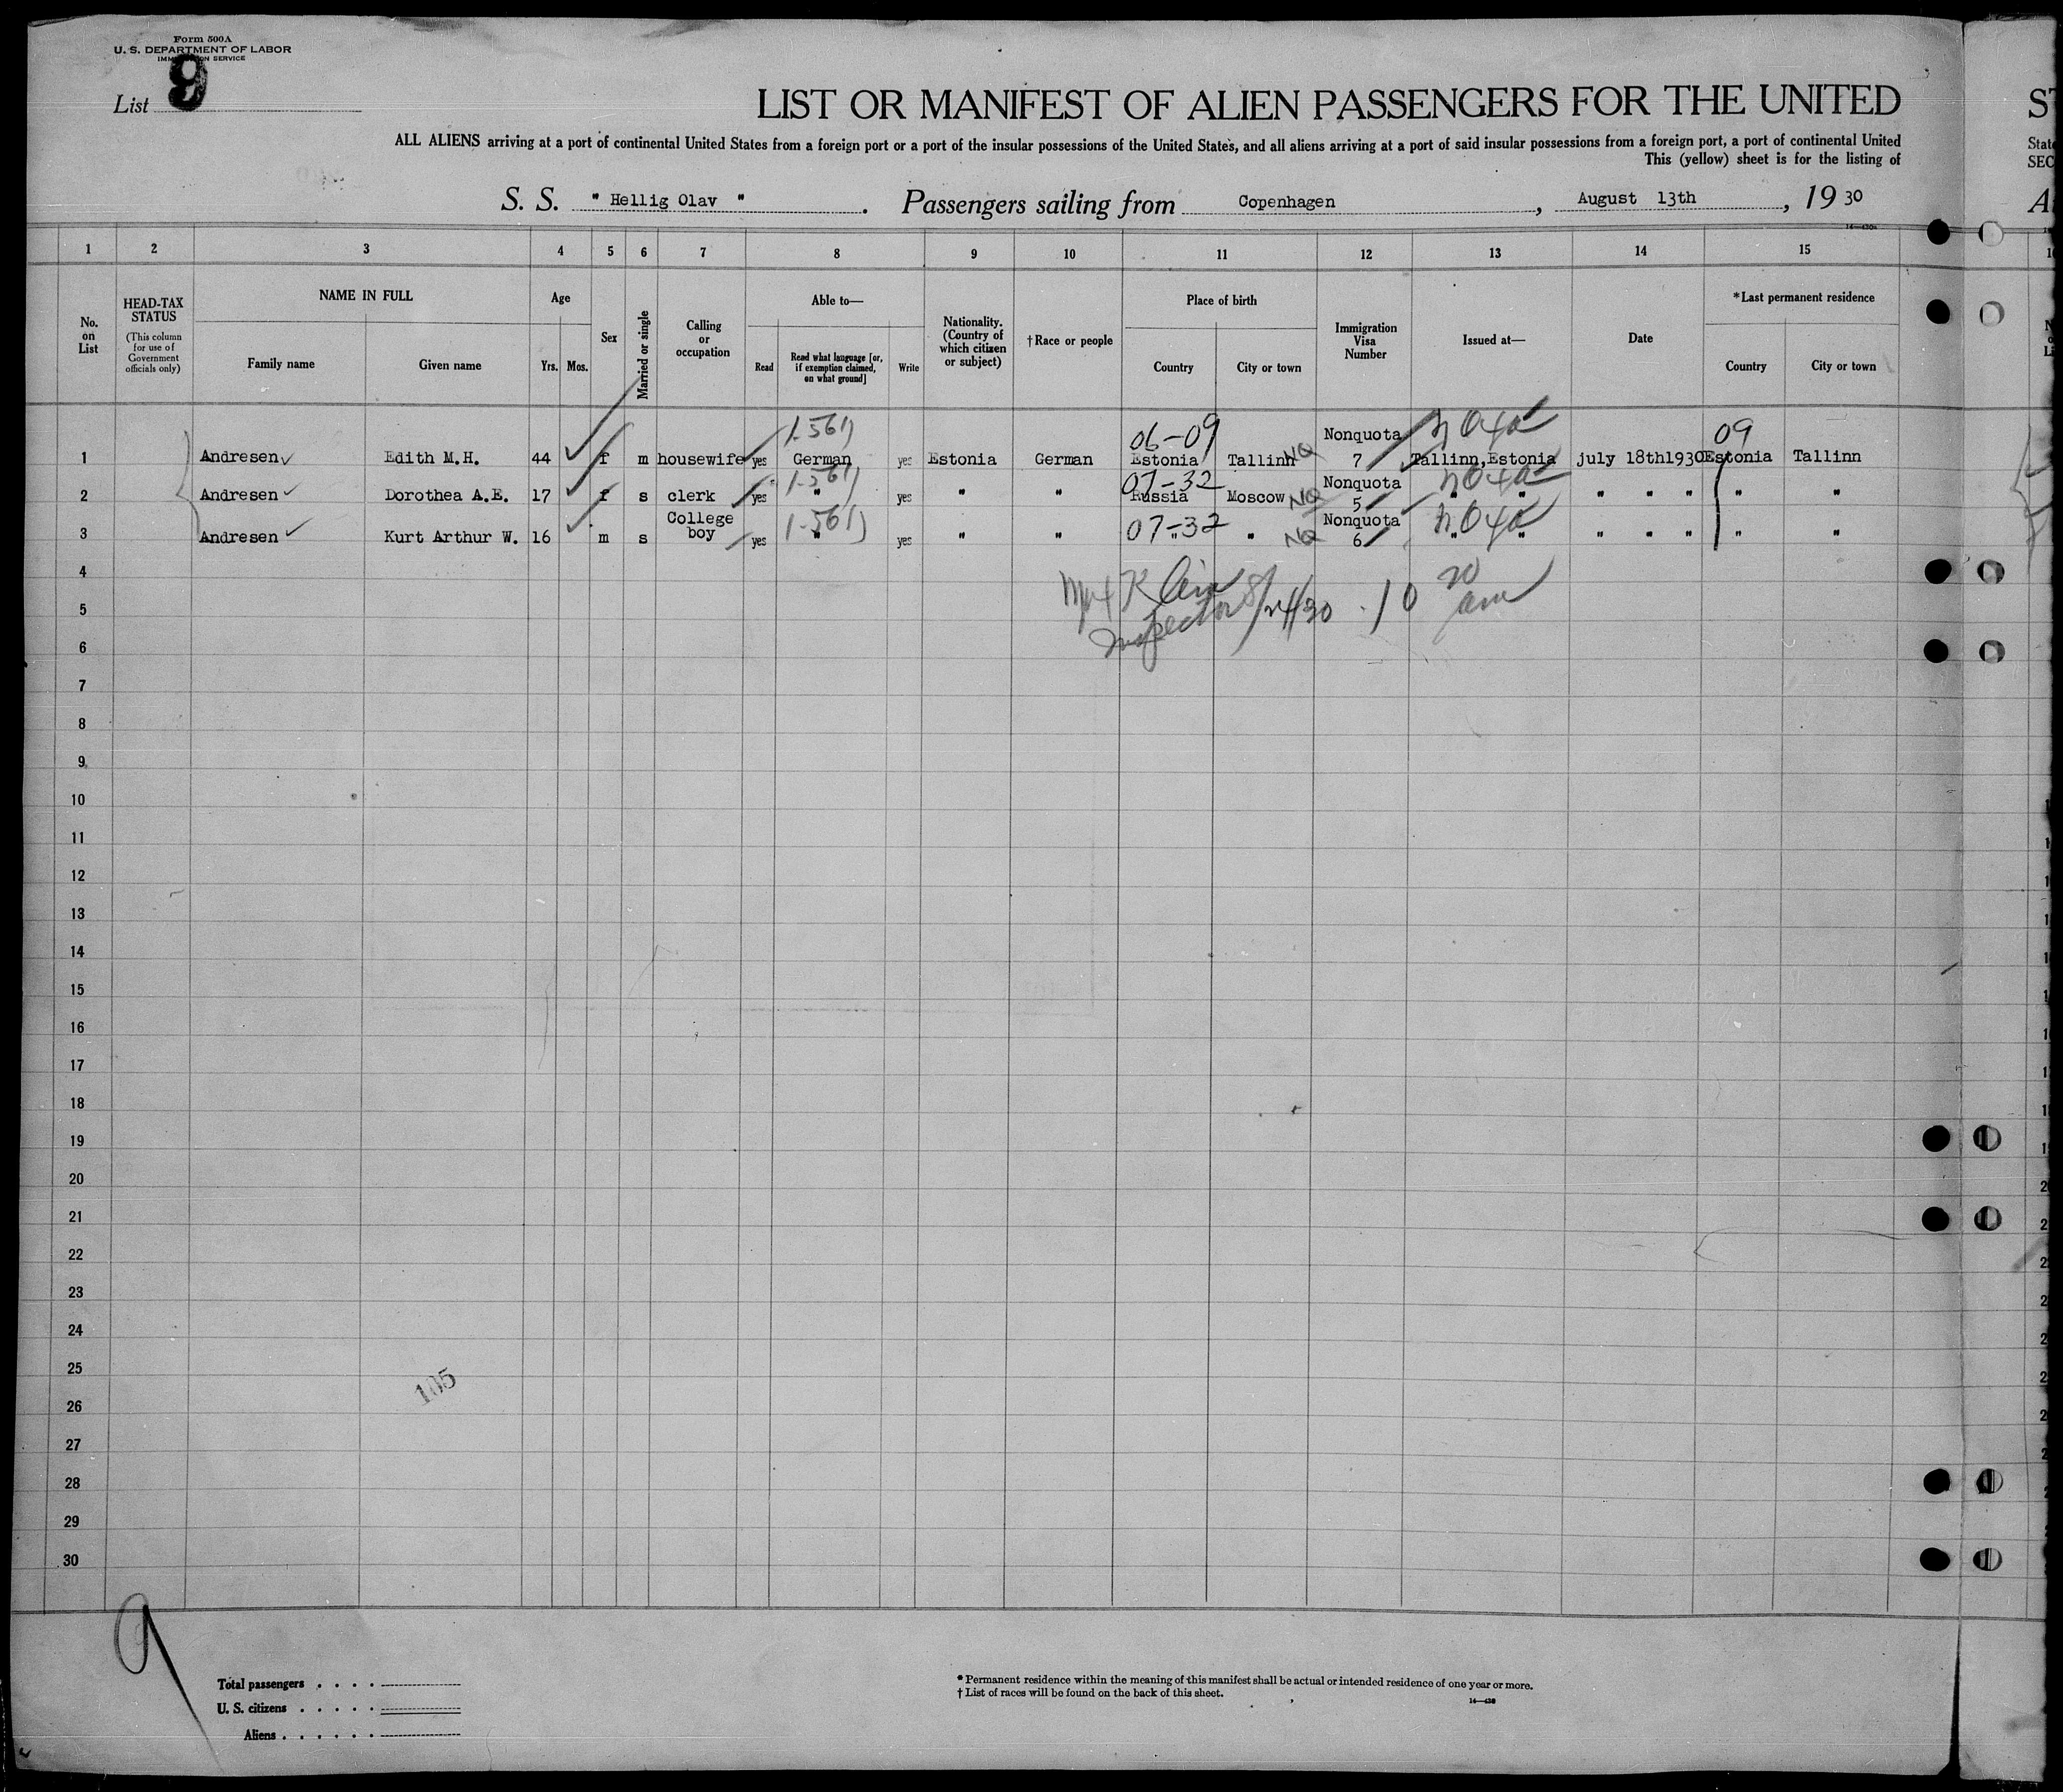 Form 500A
U. S. DEPARTMENT OF LABOR
IMMIGRATION SERVICE
List 9
LIST OR MANIFEST OF ALIEN PASSENGERS FOR THE UNITED
ALL ALIENS arriving at a port of continental United States from a foreign port or a port of the insular possessions of the United States, and all aliens arriving at a port of said insular possessions from a foreign port, a port of continental United
This (yellow) sheet is for the listing of
S. S. " Hellig Olav " . Passengers sailing from Copenhagen , August 13th , 19 30
1 2 3 4 5 6 7 8 9 10 11 12 13 14 15
No. on List
HEAD-TAX STATUS (This column for use of Government officials only)
NAME IN FULL
Family name Given name
Age
Yrs. Mos.
Sex
Married or single
Calling or occupation
Able to—
Read Read what language [or, if exemption claimed, on what ground] Write
Nationality. (Country of which citizen or subject)
†Race or people
Place of birth
Country City or town
Immigration Visa Number
Issued at—
Date
*Last permanent residence
Country City or town
1-561) 06-09 Nonquota 09
1 Andresen Edith M.H. 44 f m housewife yes German yes Estonia German Estonia Tallinn NQ 7 Tallinn,Estonia july 18th1930 Estonia Tallinn
1-561) 07-32 Nonquota
2 Andresen Dorothea A.E. 17 f s clerk yes " yes " " Russia Moscow NQ 5 " " " " " " "
College 1-561) 07-32 Nonquota
3 Andresen Kurt Arthur W. 16 m s boy yes " yes " " " " NQ 6 " " " " " " "
4
5 Inspector 8/24/30 10 20 am
6
7
8
9
10
11
12
13
14
15
16
17
18
19
20
21
22
23
24
25
105
26
27
28
29
30
9
Total passengers . . . .
U. S. citizens . . . . .
Aliens . . . . . .
* Permanent residence within the meaning of this manifest shall be actual or intended residence of one year or more.
† List of races will be found on the back of this sheet.
14—430